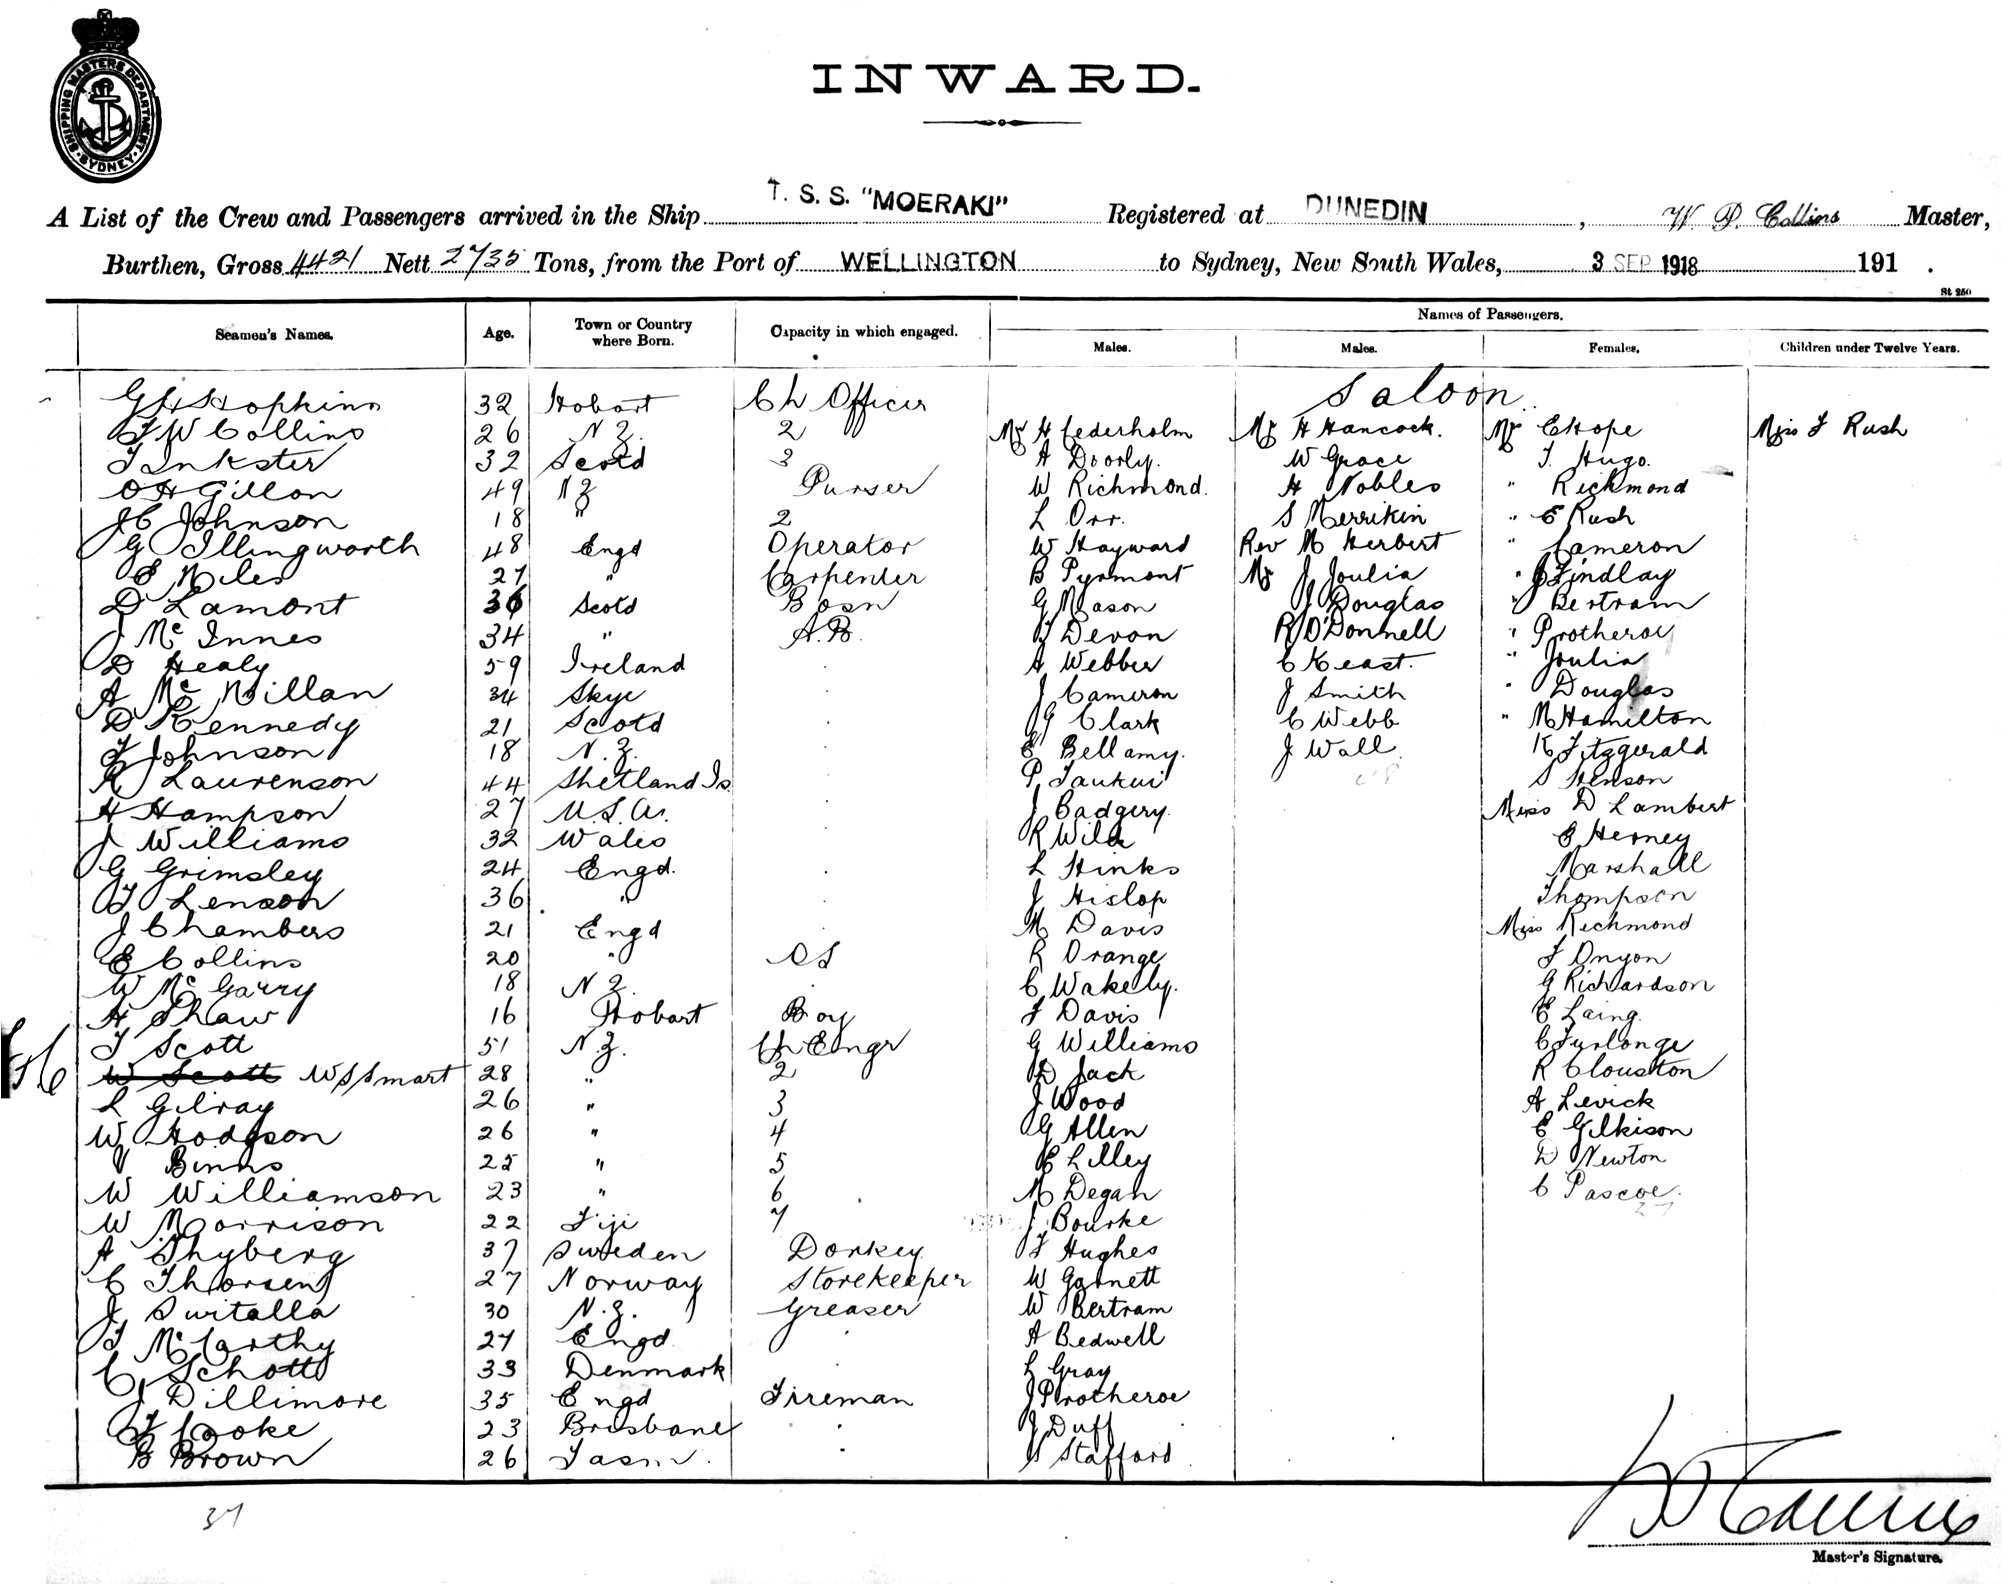 SHIPPING MASTERS DEPARTMENT
SYDNEY
INWARD.
A List of the Crew and Passengers arrived in the Ship T. S. S. "MOERAKI" Registered at DUNEDIN, W P. Collins Master,
Burthen, Gross 4421 Nett 2735 Tons, from the Port of WELLINGTON to Sydney, New South Wales, 3 SEP 1918 191 .
St 250
Names of Passengers.
Seamen's Names. Age. Town or Country where Born. Capacity in which engaged. Males. Males. Females. Children under Twelve Years.
Saloon
G H Hopkins 32 Hobart Ch Officer
F W Collins 26 N Z. 2 Mr H Cederholm Mr H Hancock. Mrs E Hope Miss F Rush
T Inkster 32 Scotd 3 A Doorly. W Grace T. Hugo.
O H Gillon 49 N Z Purser W Richmond. H Nobles " Richmond
J C Johnson 18 " 2 L Orr. S Merrikin " E Rush
G Illingworth 48 Engd Operator W Hayward Rev M Herbert " Cameron
E Miles 27 " Carpenter B Pyrmont Mr J Joulia " J Findlay
D Lamont 36 Scotd Bosn G Mason J Douglas " Bertram
J McInnes 34 " A.B. T Devon R O'Donnell " Protheroe
D Healy 59 Ireland A Webber C Keast. " Joulia
A McMillan 34 Skye J Cameron J Smith " Douglas
D Kennedy 21 Scotd G Clark C Webb " M Hamilton
F Johnson 18 N. Z. E Bellamy. J Wall K Fitzgerald
R Laurenson 44 Shetland Is P Taukui S Henson
H Hampson 27 U.S.A. J Badgery. Miss D Lambert
J Williams 32 Wales R Wild E Herney
G Grimsley 24 Engd. L Hinks Marshall
T Lenson 36 " J Hislop Thompson
J Chambers 21 Engd M Davis Miss Richmond
E Collins 20 " OS R Orange F Onyon
W McGarry 18 N Z. C Wakely. G Richardson
H Shaw 16 Hobart Boy F Davis E Laing.
T Scott 51 N. Z. Ch Engr G Williams C Furlonge
W Scott W S Smart 28 " 2 D Jack R Clouston
L Gilray 26 " 3 J Wood A Levick
W Hodgson 26 " 4 G Allen E Gilkison
V Binns 25 " 5 E Lilley D Newton
W Williamson 23 " 6 M Degan C Pascoe.
W Morrison 22 Fiji 7 J Bourke 27
A Thyberg 37 Sweden Donkey F Hughes
C Thorsen 27 Norway Storekeeper W Garnett
J Surtalla 30 N. Z. Greaser W Bertram
T McCarthy 27 Engd. A Bedwell
C Schott 33 Denmark L Gray
J Dillimore 35 Engd Fireman J Protheroe
F Cooke 23 Brisbane J Duff
B Brown 26 Tasm. S Stafford
37
Master's Signature.